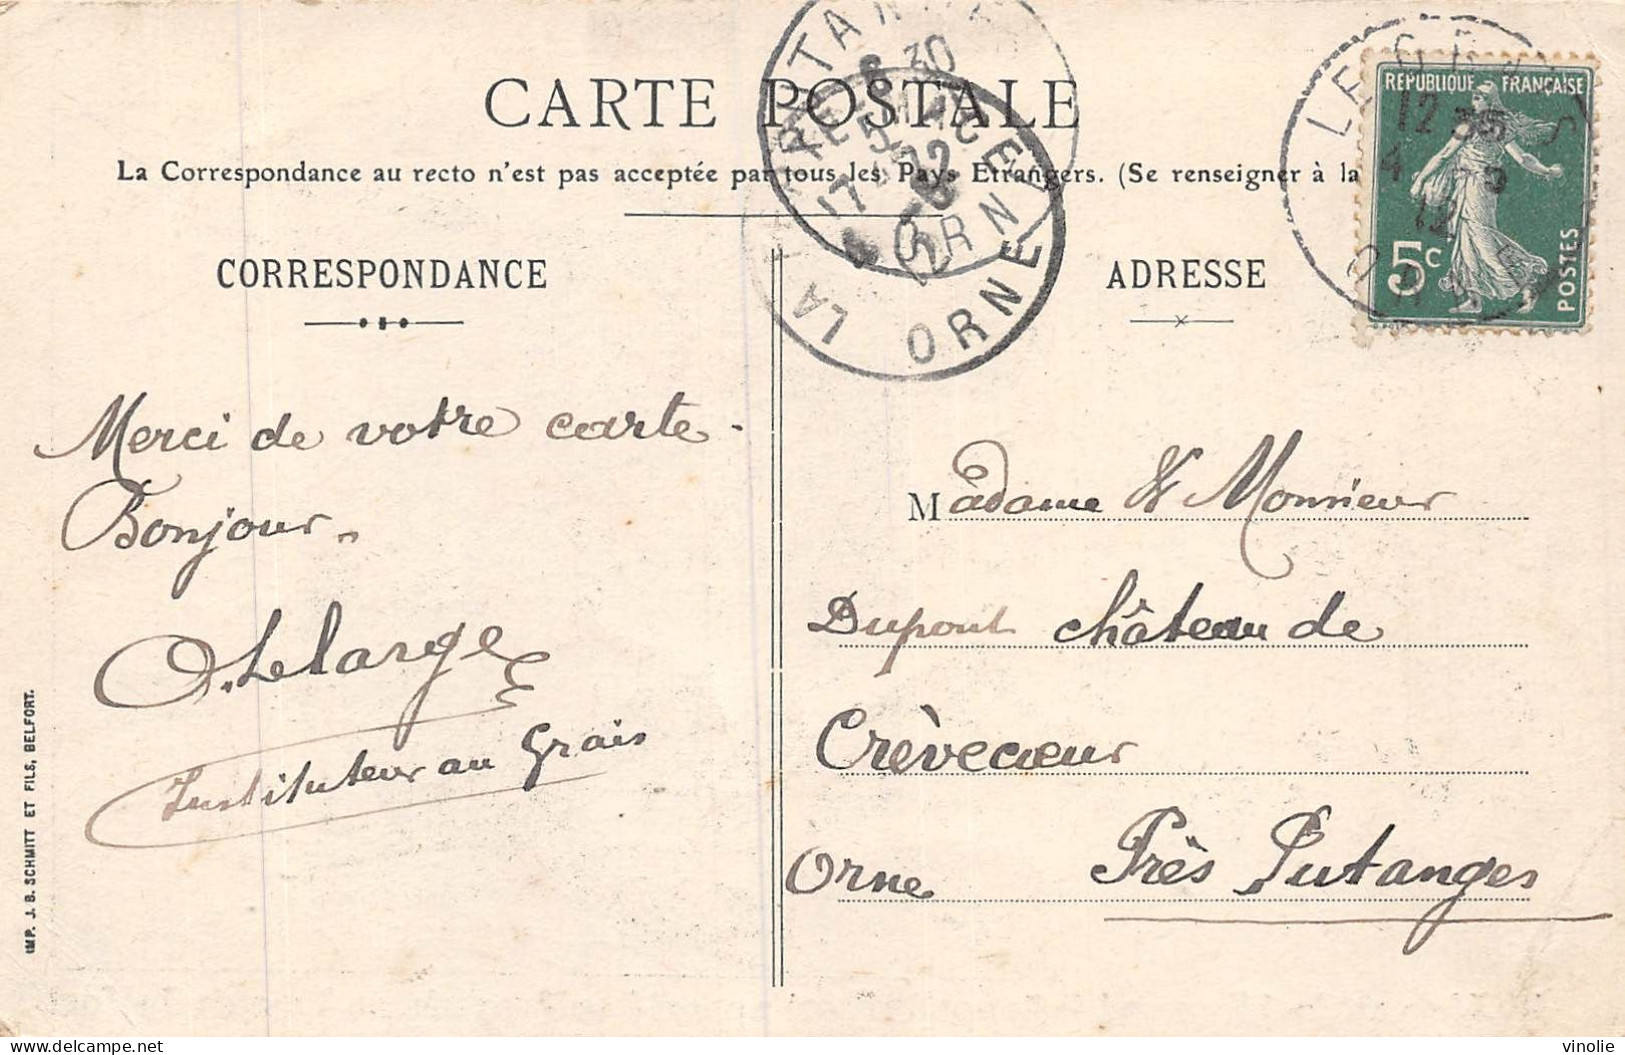 CARTE POSTALE
La Correspondance au recto n'est pas acceptée par tous les Pays Etrangers. (Se renseigner à la
CORRESPONDANCE
ADRESSE
RÉPUBLIQUE FRANÇAISE
5c
POSTES
LE GRAIS
12 35
4 - 5
12
ORNE
LA FERTÉ-MACÉ
ORNE
Merci de votre carte.
Bonjour.
O. Lelarge
Instituteur au Grais
Madame & Monsieur
Dupont château de
Crèvecœur
Près Putanges
Orne
IMP. J. B. SCHMITT ET FILS, BELFORT.
delcampe.net
vinolie